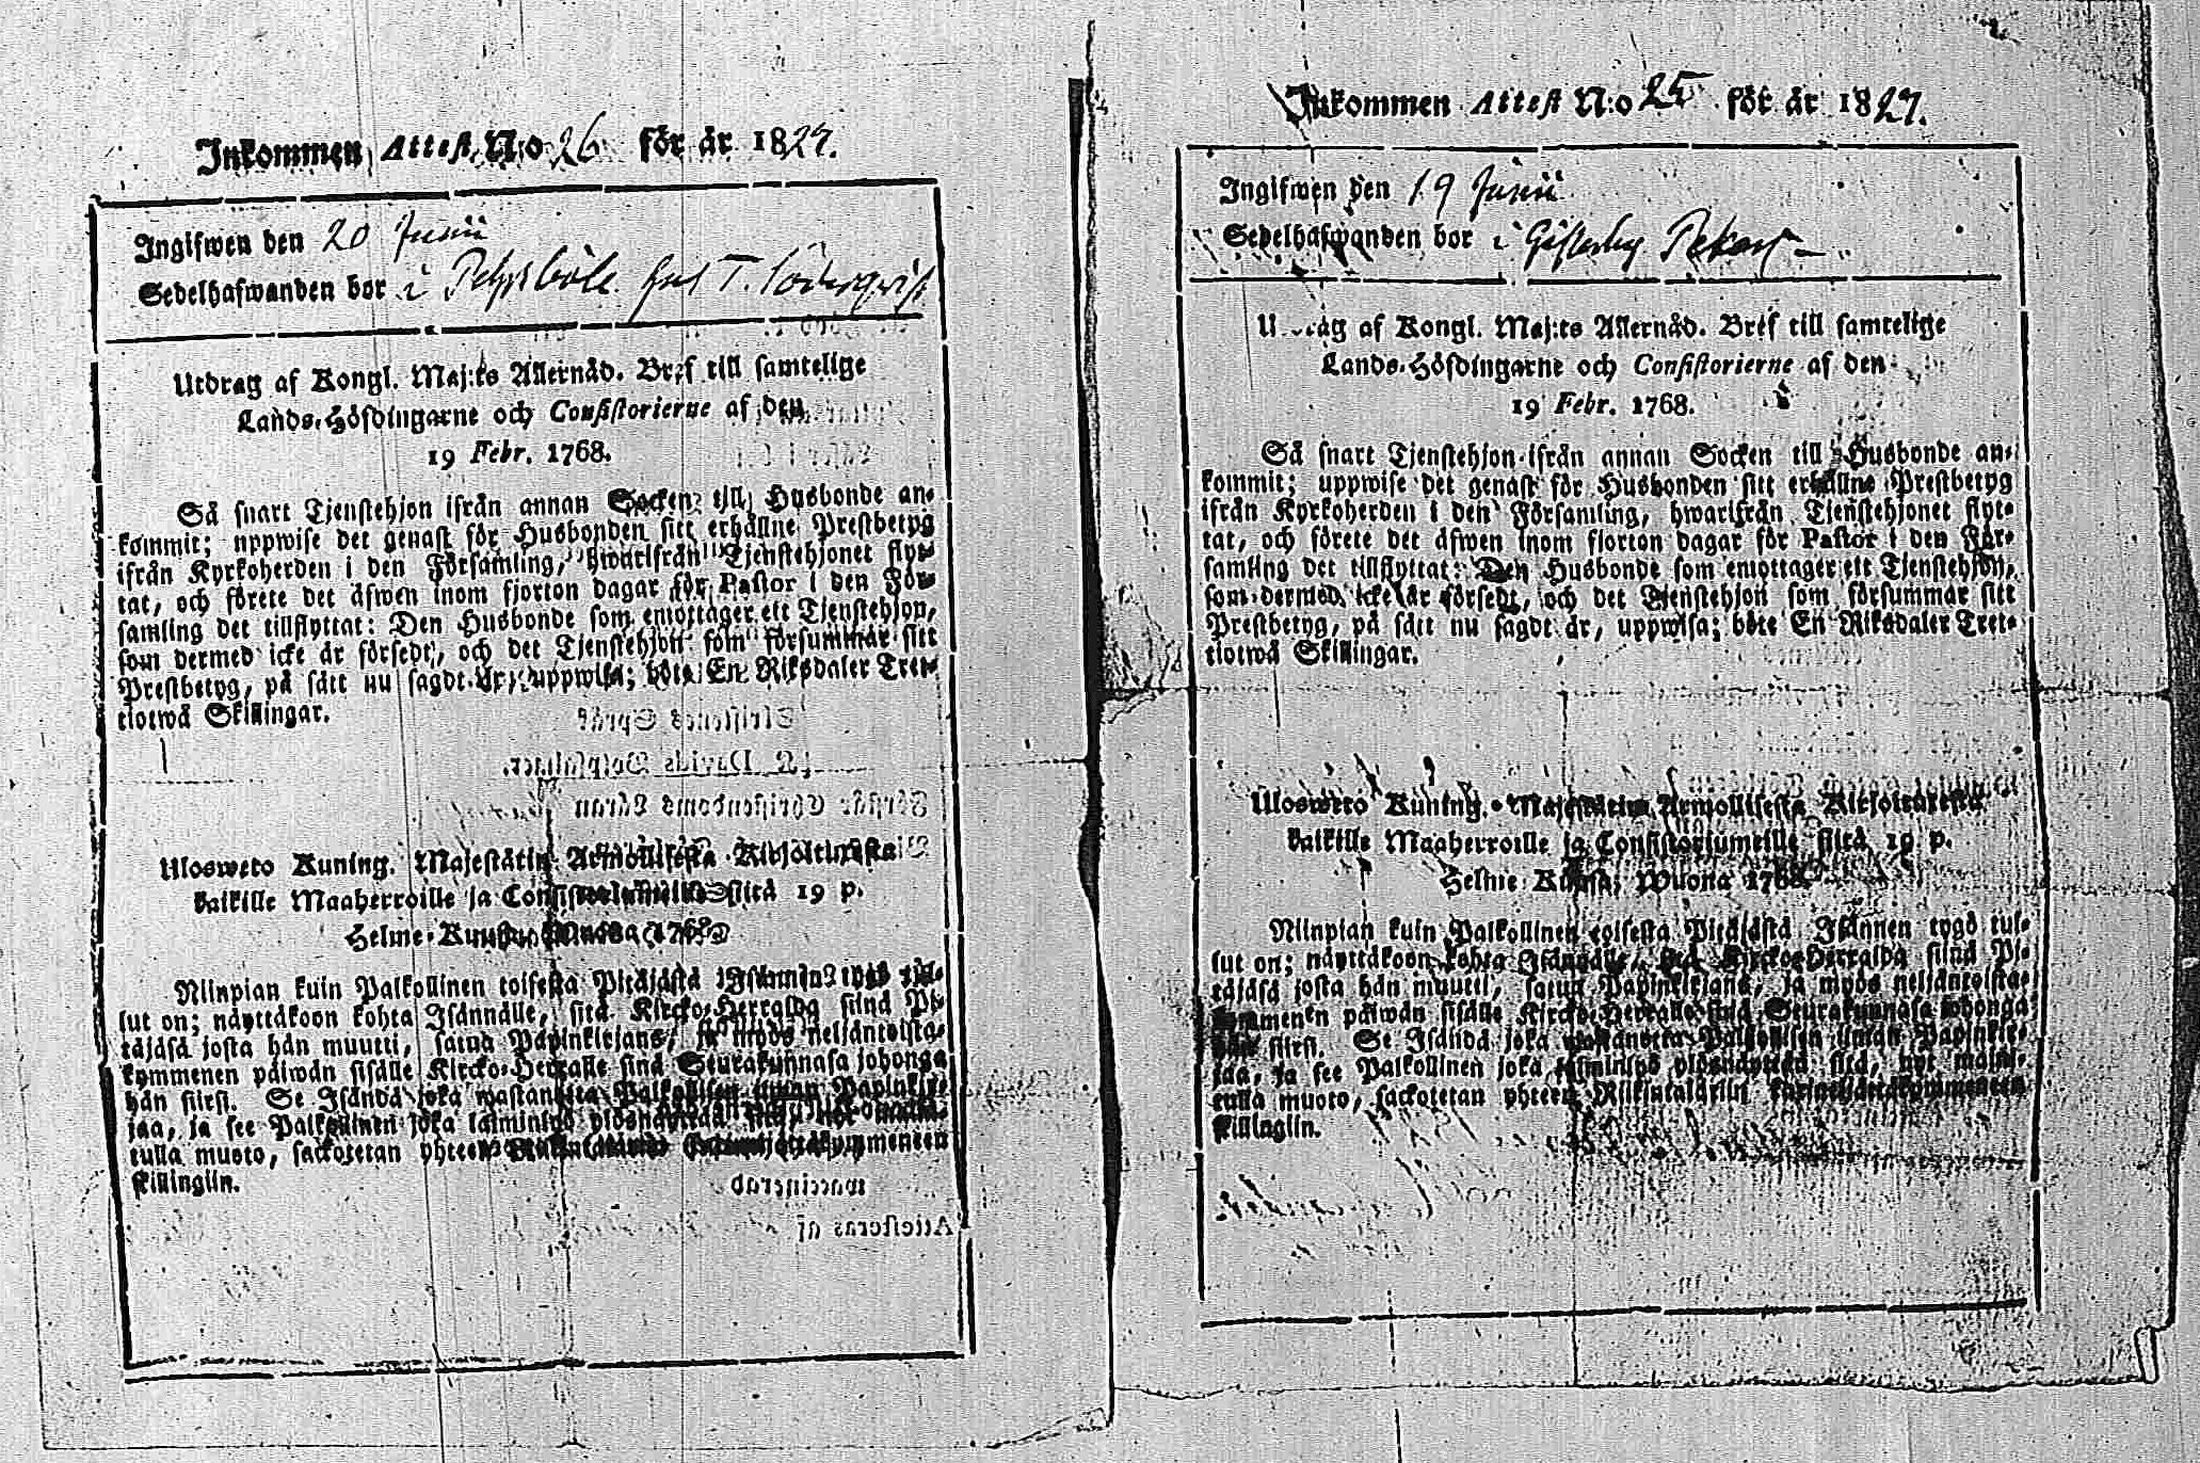 Inkommen Attest N:o 26 för år 1827.
Ingifwen den 20 Junii
Sedelhafwanden bor i
Utdrag af Kongl. Maj:ts Allernåd. Bref till samtelige
Lands-Höfdingarne och Consistorierne af den
19 Febr. 1768.
Så snart Tjenstehjon ifrån annan Socken till Husbonde an-
kommit; uppwise det genast för Husbonden sitt erhållne Prestbetyg
ifrån Kyrkoherden i den Församling, hwarifrån Tjenstehjonet flyt-
tat, och förete det äfwen inom fjorton dagar för Pastor i den För-
samling det tillflyttat: Den Husbonde som emottager ett Tjenstehjon,
som dermed icke är försedt, och det Tjenstehjon som försummar sitt
Prestbetyg, på sätt nu sagdt är, uppwisa; böte En Riksdaler Tret-
tiotwå Skillingar.
Ulosweto Kuning. Majestätin Armollisesta Kirjoituxesta
kaikille Maaherroille ja Consistoriumeille siitä 19 p.
Helme-Kuusa, Wuona 1768.
Niinpian kuin Palkollinen toisesta Pitäjästä Isännen tygö tul-
lut on; näyttäkoon kohta Isännälle, sitä Kircko-Herralda siinä Pi-
täjäsä josta hän muutti, saatua Papinkirjans, ja myös neljäntoista-
kymmenen päiwän sisälle Kircko-Herralle siinä Seurakunnasa johonga
hän siirsi. Se Isändä joka wastanotta Palkollisen ilman Papinkir-
jaa, ja see Palkollinen joka laiminlyö ylösnäyttää sitä, nyt maini-
tulla muoto, sackotetan yhteen Riikintalariin
skillingiin.
Inkommen Attest N:o 25 för år 1827.
Ingifwen den 19 Junii
Sedelhafwanden bor i
Utdrag af Kongl. Maj:ts Allernåd. Bref till samtelige
Lands-Höfdingarne och Consistorierne af den
19 Febr. 1768.
Så snart Tjenstehjon ifrån annan Socken till Husbonde an-
kommit; uppwise det genast för Husbonden sitt erhållne Prestbetyg
ifrån Kyrkoherden i den Församling, hwarifrån Tjenstehjonet flyt-
tat, och förete det äfwen inom fjorton dagar för Pastor i den För-
samling det tillflyttat: Den Husbonde som emottager ett Tjenstehjon,
som dermed icke är försedt, och det Tjenstehjon som försummar sitt
Prestbetyg, på sätt nu sagdt är, uppwisa; böte En Riksdaler Tret-
tiotwå Skillingar.
Ulosweto Kuning. Majestätin Armollisesta Kirjoituxesta
kaikille Maaherroille ja Consistoriumeille siitä 19 p.
Helme Kuusa, Wuona 1768.
Niinpian kuin Palkollinen toisesta Pitäjästä Isännen tygö tul-
lut on; näyttäkoon kohta Isännälle, sitä Kircko-Herralda siinä Pi-
täjäsä josta hän muutti, saatua Papinkirjans, ja myös neljäntoista-
kymmenen päiwän sisälle Kircko-Herralle siinä Seurakunnasa johonga
hän siirsi. Se Isändä joka wastanotta Palkollisen ilman Papinkir-
jaa, ja see Palkollinen joka laiminlyö ylösnäyttää sitä, nyt maini-
tulla muoto, sackotetan yhteen Riikintalariin
skillingiin.